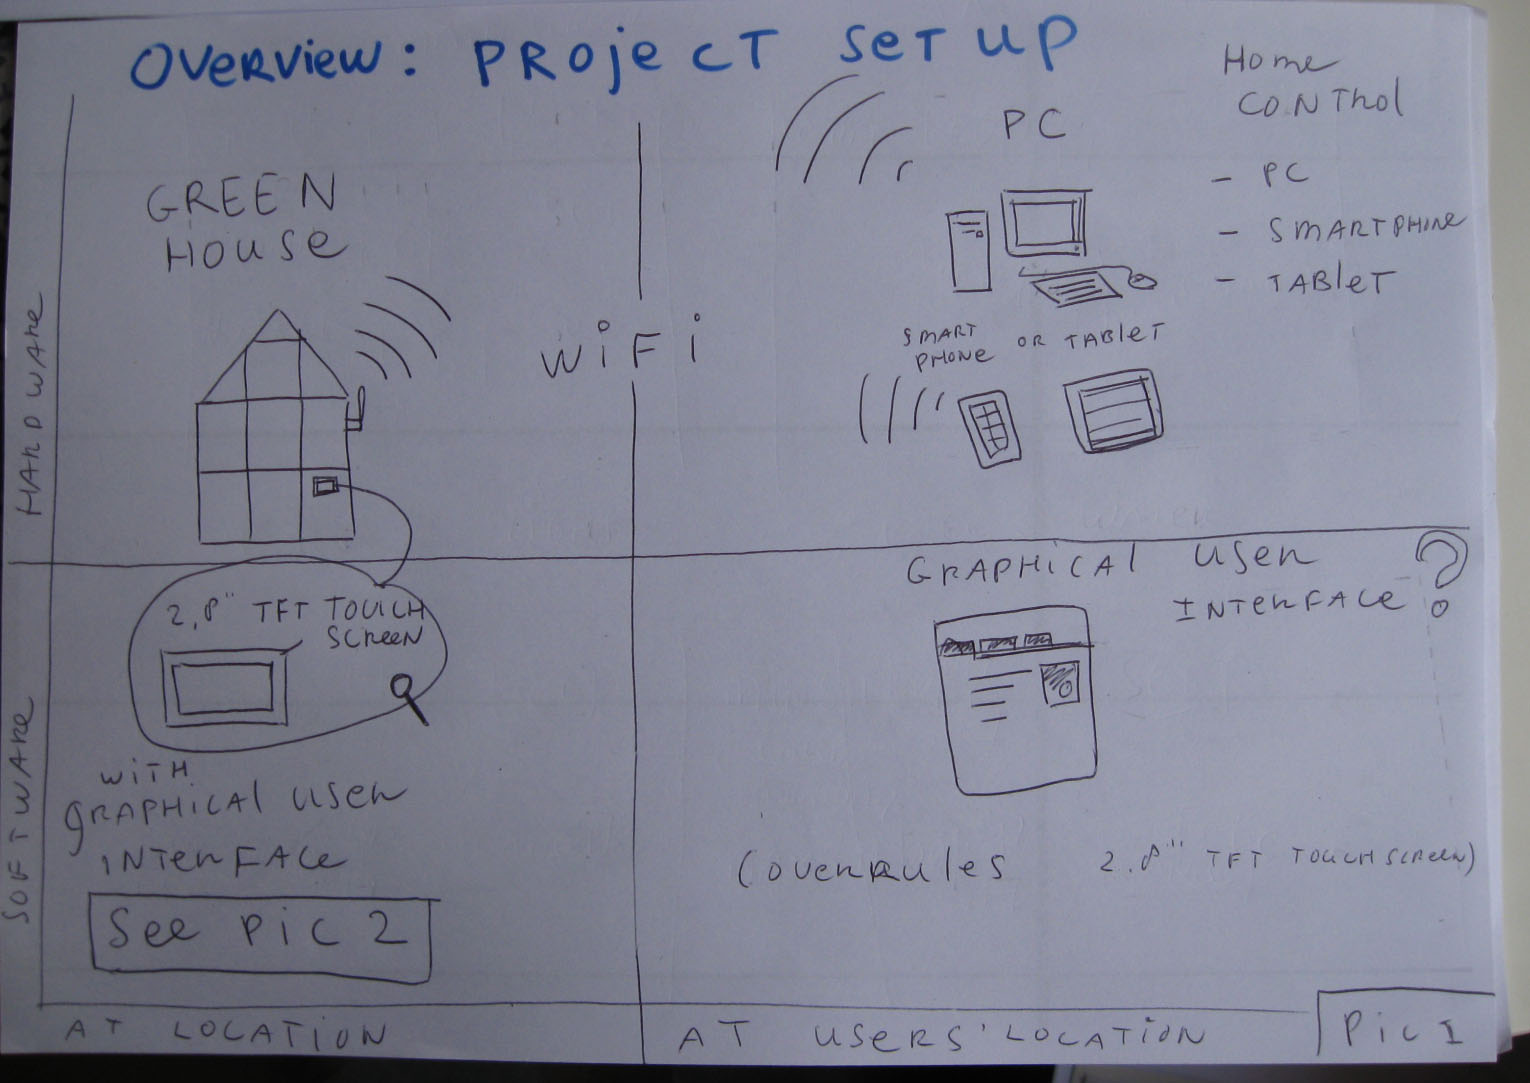 OVERVIEW: PROJECT SETUP
HOME
CONTROL
- PC
- SMARTPHINE
- TABLET
PC
GREEN
HOUSE
WIFI
SMART
PHONE OR TABLET
HARDWARE
GRAPHICAL USER
INTERFACE ?
2,8" TFT TOUCH
SCREEN
WITH
GRAPHICAL USER
INTERFACE
See Pic 2
(OVERRULES 2.8" TFT TOUCHSCREEN)
SOFTWARE
AT LOCATION
AT USERS' LOCATION
Pic 1